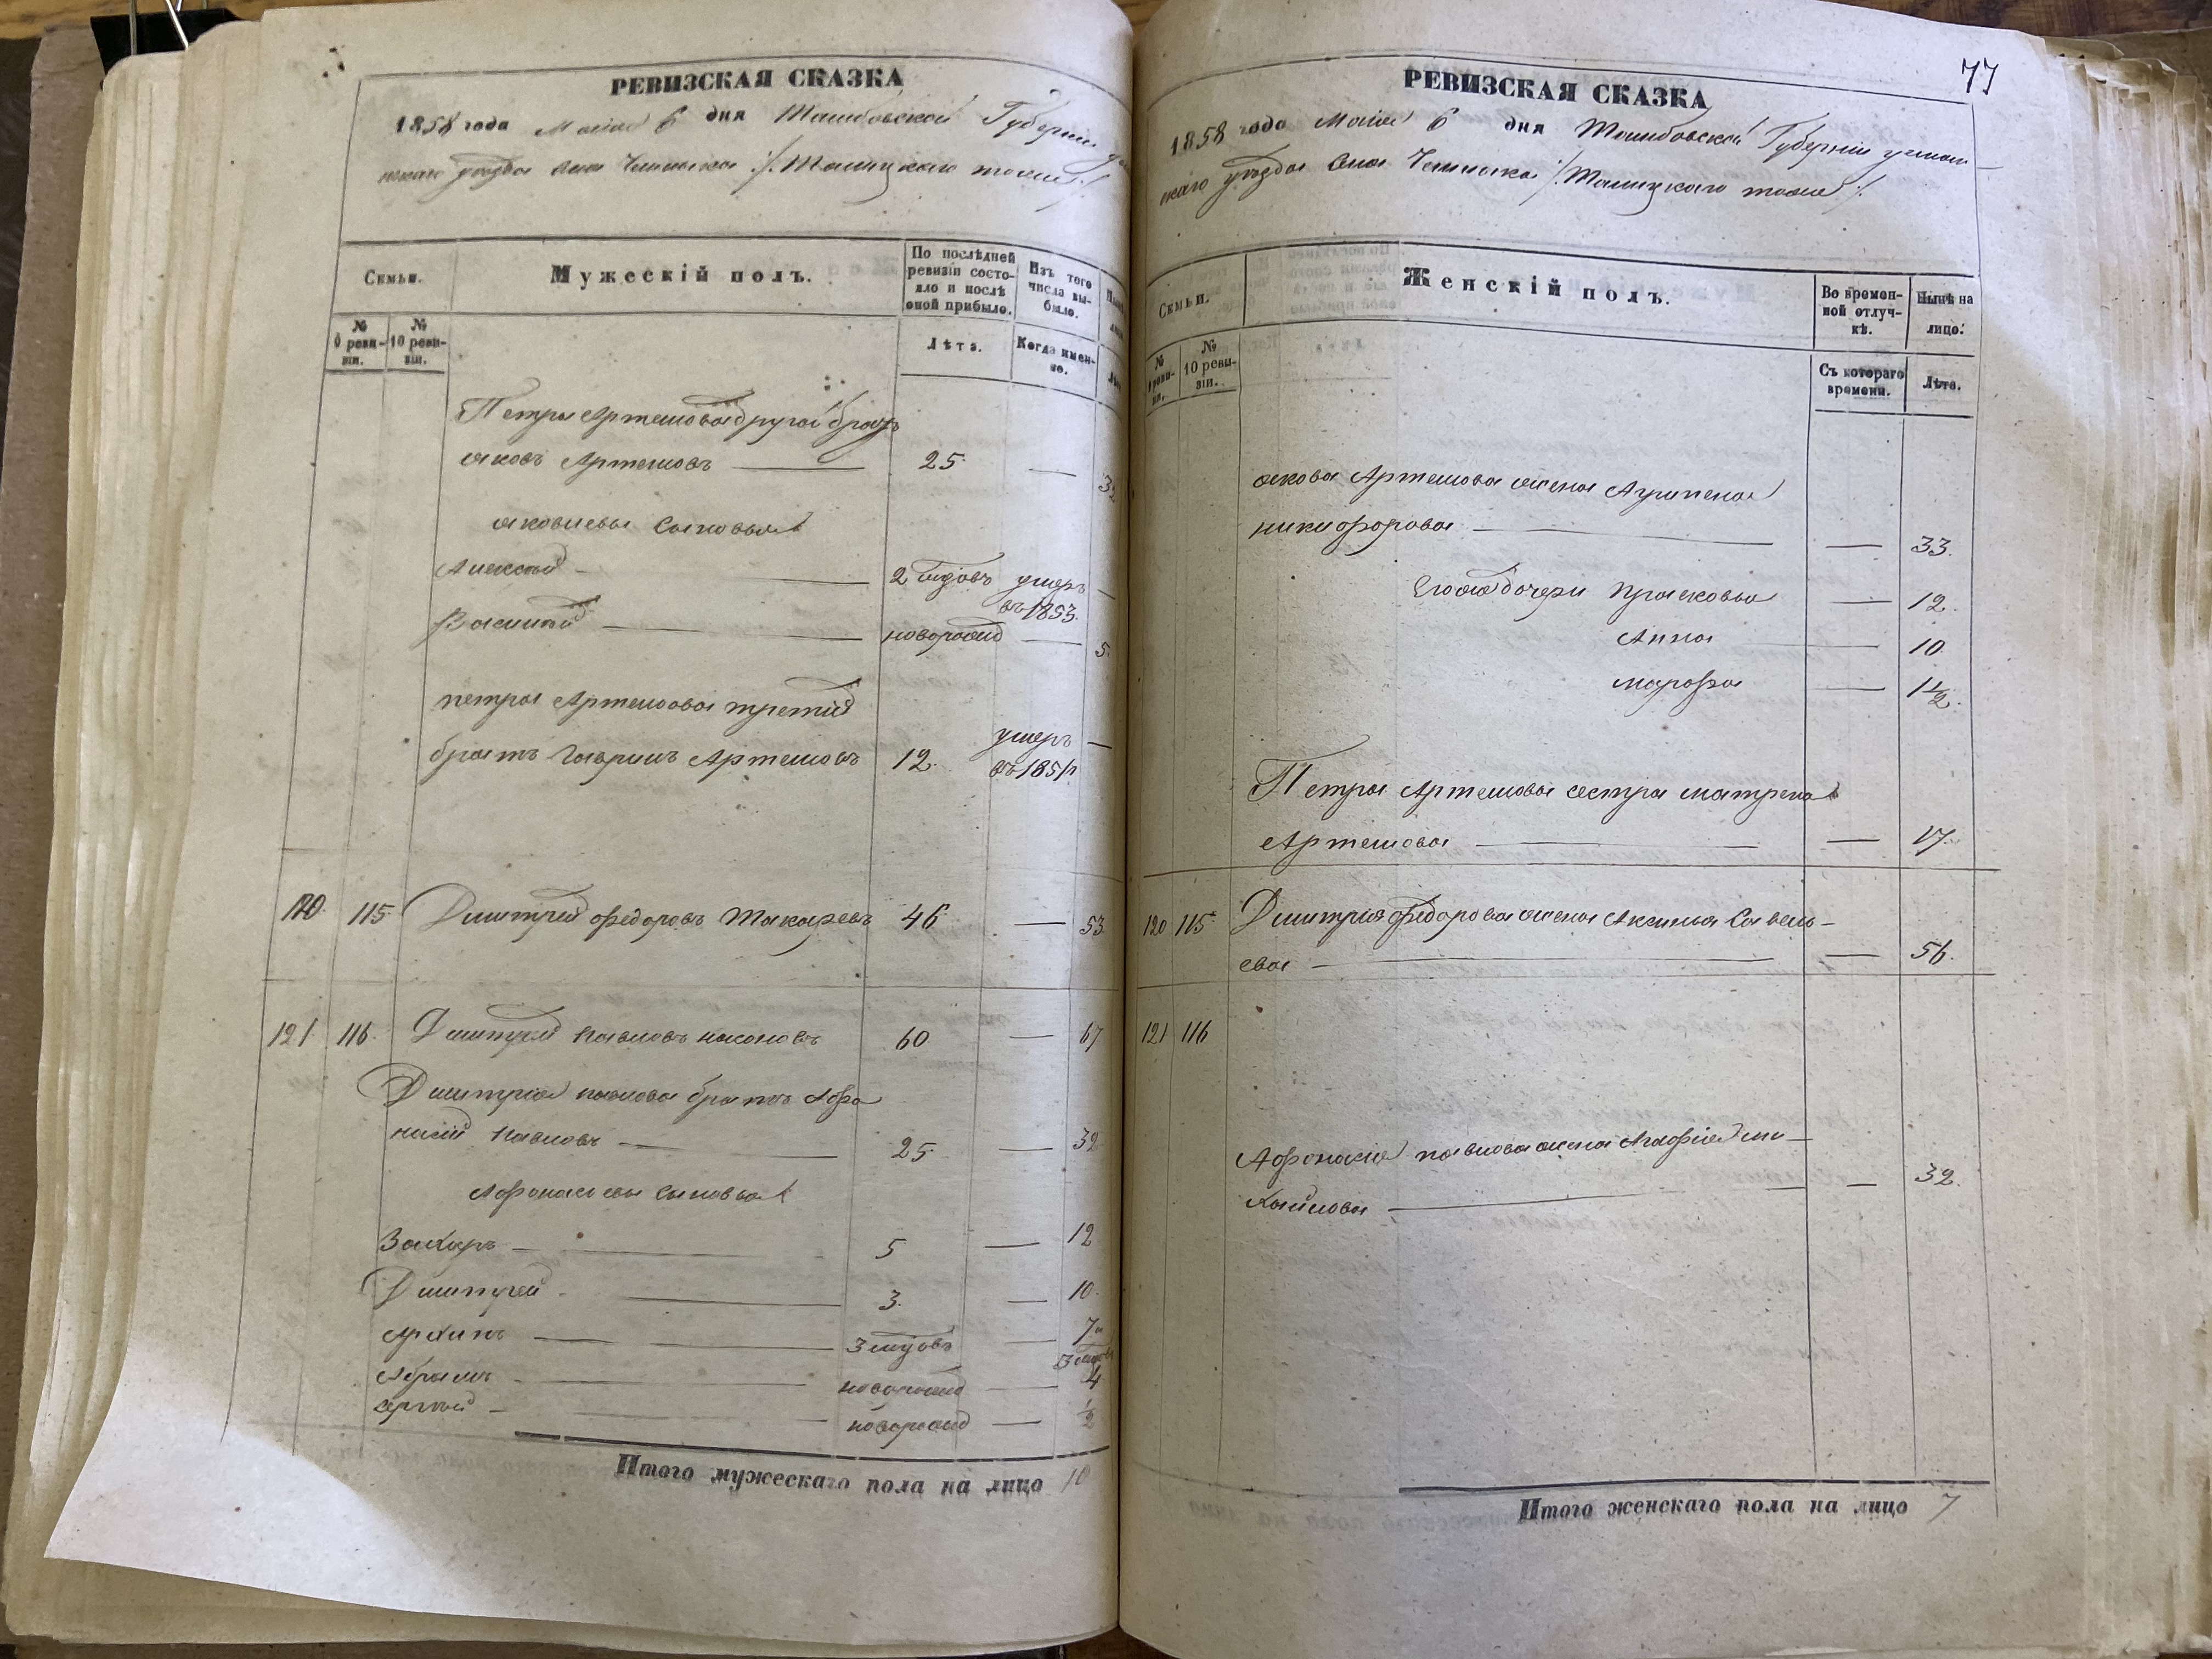 РЕВИЗСКАЯ СКАЗКА
1858 года Маія 6 дня Тамбовской Губерніи
скаго уѣзда Села /: Талицкаго тожъ :/
Семьи.
Мужескій полъ.
По послѣдней ревизіи состояло и послѣ оной прибыло.
Изъ того числа выбыло.
№ 9 ревизіи.
№ 10 ревизіи.
Лѣта.
Когда именно.
Петра Артемова другой братъ
Яковъ Артемовъ — 25 — 32
Яковлевы Сыновья
Алексѣй — 2 мѣсяцовъ умеръ въ 1853 —
Василій — новорожд — 5
Петра Артемова третій
братъ Гаврилъ Артемовъ 12 умеръ въ 1854 —
120 115 Дмитрій Федоровъ Токаревъ 46 — 53
121 116 Дмитрій Павловъ 60 — 67
Дмитрія Павлова братъ Афо
насій Павловъ — 25 — 32
Афонасьевы Сыновья
Захаръ — 5 — 12
Дмитрей — 3 — 10
Архипъ — 3 мѣсяцовъ — 7 и 3 мѣсяц
Абрамъ — новорожд — 4
Сергѣй — новорожд — 1/2
Итого мужескаго пола на лицо 10
77
РЕВИЗСКАЯ СКАЗКА
1858 года Маія 6 дня Тамбовской Губерніи усман
скаго уѣзда Села /: Талицкаго тожъ :/
Семьи.
Женскій полъ.
Во временной отлучкѣ.
Нынѣ на лицо.
№ 9 ревизіи.
№ 10 ревизіи.
Съ котораго времени.
Лѣта.
Якова Артемова жена Агрипена
Никифорова — — 33
Егожъ дочери Прасковья — 12
Анна — 10
Марфа — 1 1/2
Петра Артемова сестра Матрена
Артемова — — 17
120 115 Дмитрія Федорова жена Аксинья Савель-
ева — — 56
121 116
Афонасія Павлова жена Агафія Ми-
хайлова — — 32
Итого женскаго пола на лицо 7